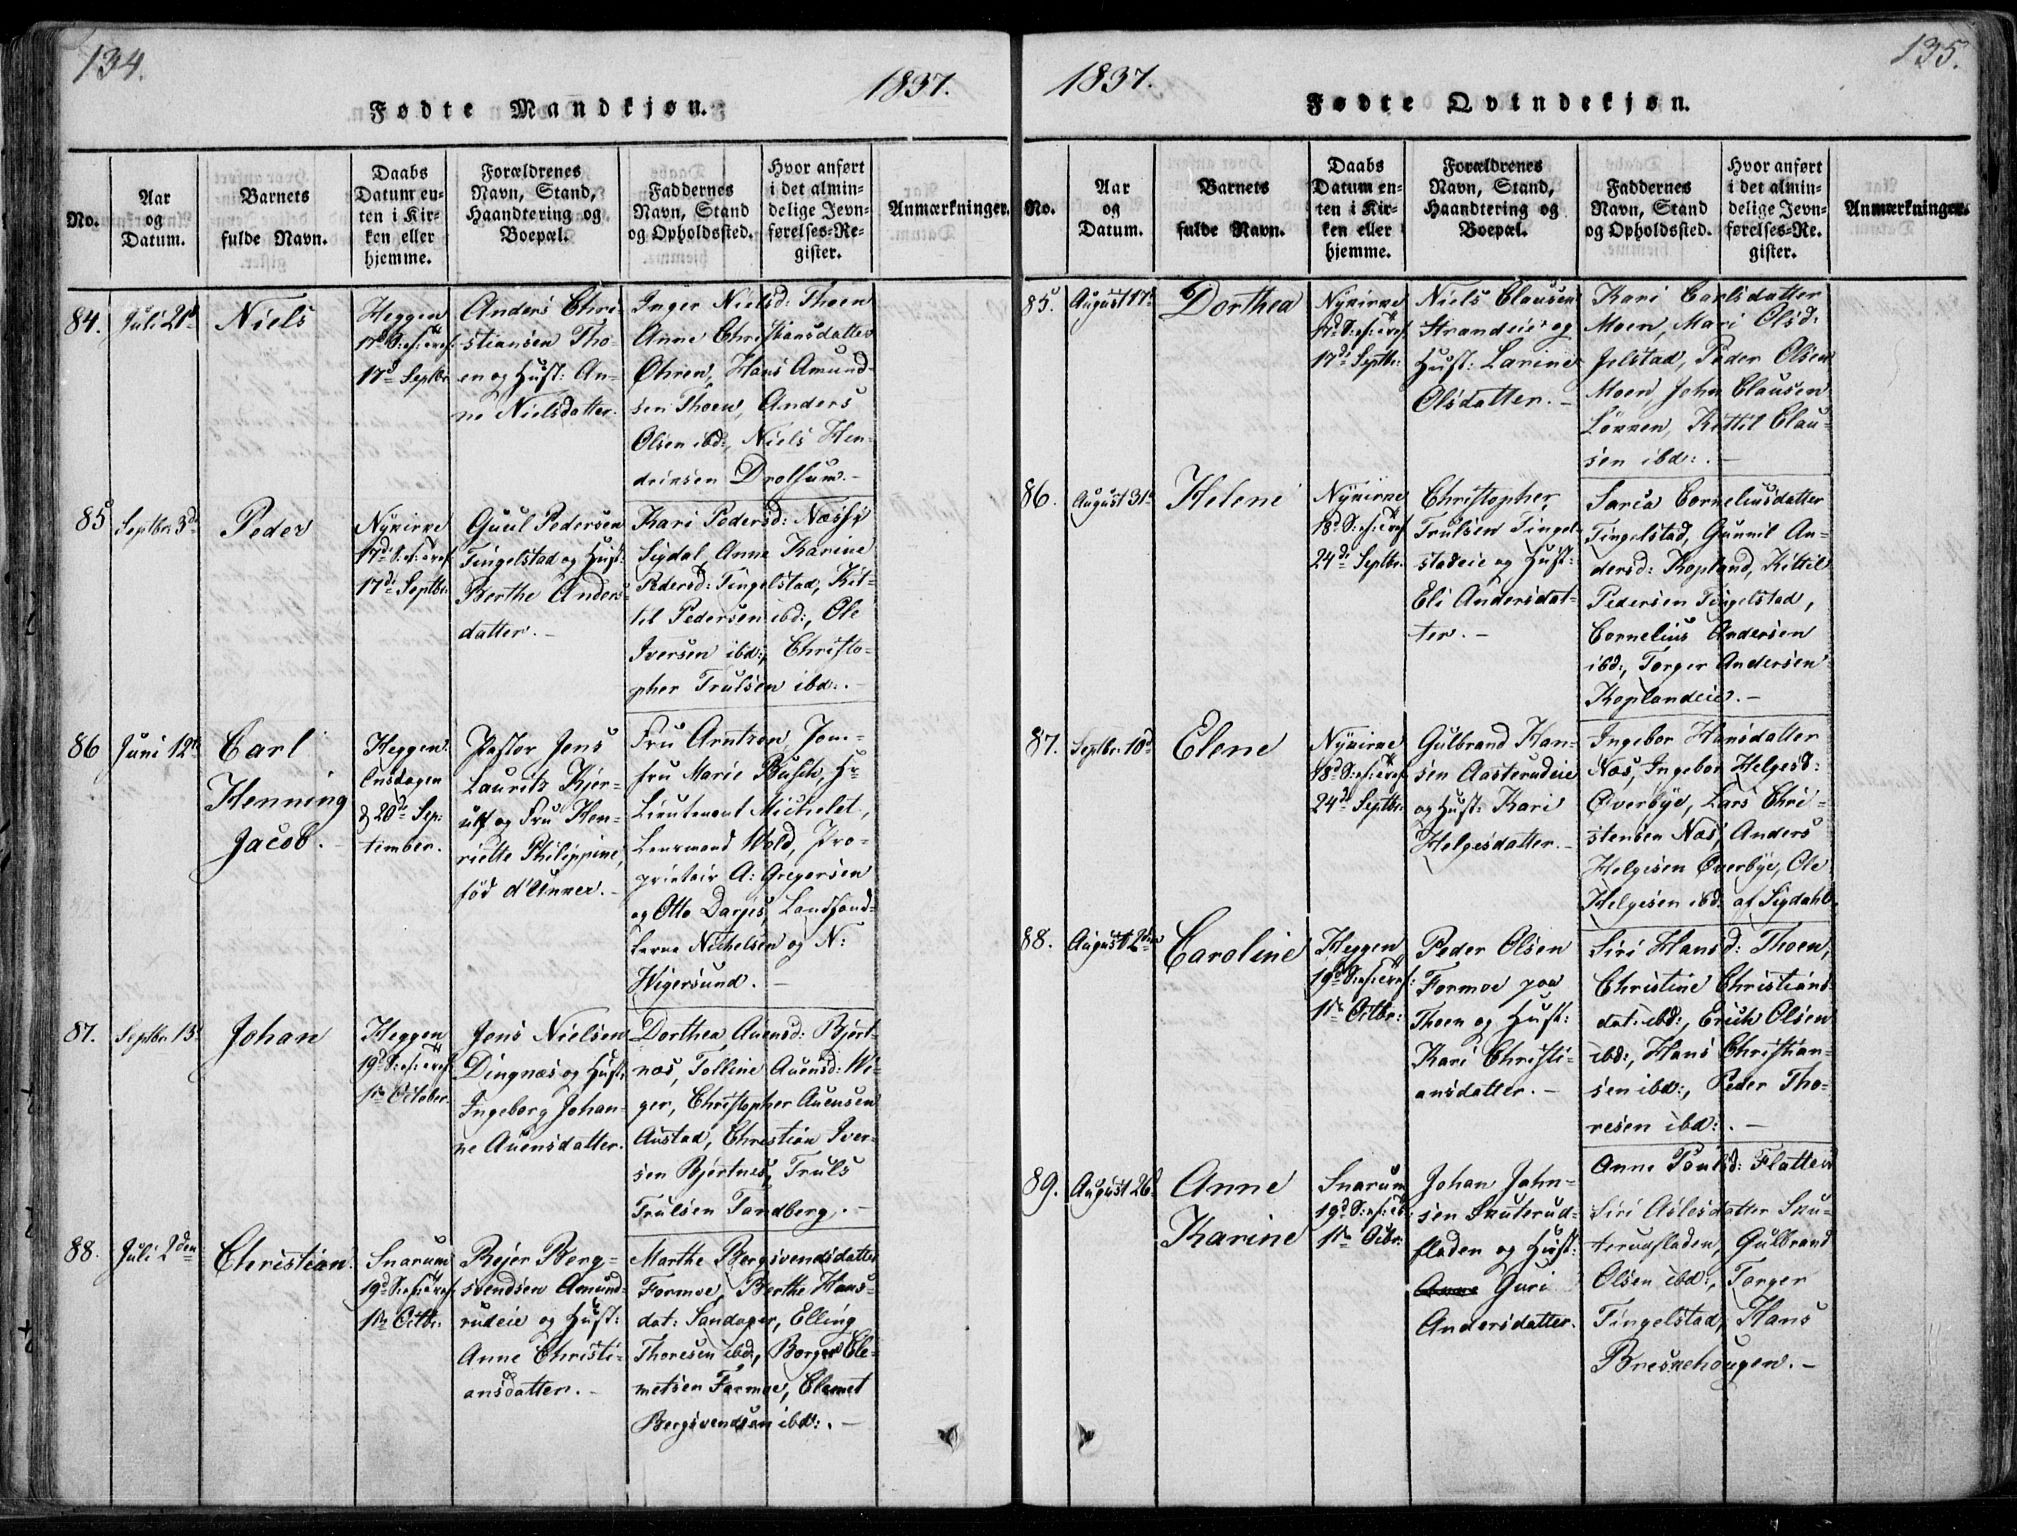 134.
1837.
Fødte Mandkjøn.
No.
Aar
og
Datum.
Barnets
fulde Navn.
Daabs
Datum en-
ten i Kir-
ken eller
hjemme.
Forældrenes
Navn, Stand,
Haandtering og
Boepæl.
Faddernes
Navn, Stand
og Opholdssted.
Hvor anført
i det almin-
delige Jevn-
førelses-Re-
gister.
Anmærkninger.
84.
Juli 21de
Niels
Heggen
17d S: ef: Tref:
17d Septbr
Anders Chri-
stiansen Tho-
en og Hust: An-
ne Nielsdatter.
Inger Nielsd: Thoen
Anne Christiansdatter
Øhren, Hans Amund-
sen Thoen, Anders
Olsen ibd:, Niels Hen-
dricsen Drolsum. –
85
Septbr 3de
Peder
Nykirke
17d S: ef: Tref:
17de Septbr:
Guul Pedersen
Tingelstad og Hust:
Berthe Anders-
datter. –
Kari Pedersd: Næsset
Sigdal, Anne Karine
Pedersd: Tingelstad, Kit-
til Pedersen ibd:, Ole
Iversen ibd:, Christo-
pher Trulsen ibd:. –
86
Juni 12te
Carl
Henning
Jacob. –
Heggen
Onsdagen
d 20de Sep-
tember.
Pastor Jens
Lauritz Kjer-
ulf og Fru Hen-
riette Philippine,
fød d'Unker. –
Fru Arntzen, Jom-
fru Marie Busch, Hr
Lieutenant Michelet,
Lensmand Wold, Pro-
prietair A: Gregersen
og Otto Darjes, Landhand-
lerne Nichelsen og N:
Wigersund. –
87.
Septbr 13d
Johan
Heggen
19d S: ef: Tref:
1ste October.
Jens Nielsen
Dingnæs og Hust:
Ingeborg Johan-
ne Auensdatter.
Dorthea Auensd: Bjert-
næs, Tolline Auensd: Wi-
ger, Christopher Auensen
Austad, Christian Iver-
sen Bjertnes, Truls
Trulsen Tandberg. –
88.
Juli 2den
Christian
Snarum
19d S: ef: Tref:
1ste Octbr:
Rejer Berg-
svendsen Amund-
rudeie og Hust:
Anne Christi-
ansdatter. –
Marthe Bergsvendsdatter
Formoe, Berthe Hans-
dat: Sandager, Elling
Thoresen ibd:, Borger Cle-
metsen Formoe, Clemet
Bergsvendsen ibd:. –
135.
1837.
Fødte Qvindekjøn.
No.
Aar
og
Datum.
Barnets
fulde Navn.
Daabs
Datum en-
ten i Kir-
ken eller
hjemme.
Forældrenes
Navn, Stand,
Haandtering og
Boepæl.
Faddernes
Navn, Stand
og Opholdssted.
Hvor anført
i det almin-
delige Jevn-
førelses-Re-
gister.
Anmærkninger.
85.
August 17de
Dorthea
Nykirke
17d S: ef: Tref:
17de Septbr:
Niels Clausen
Strandeie og
Hust: Larine
Olsdatter. –
Kari Carlsdatter
Moen, Mari Olsd:
Jelstad, Peder Olsen
Moen, John Clausen
Lønnen, Kittil Clau-
sen ibd:. –
86.
August 31te
Helene
Nykirke
18d S: ef: Tref:
24de Septbr:
Christopher
Trulsen Tingel-
stadeie og Hust:
Eli Andersdat-
ter. –
Saria Corneliusdatter
Tingelstad, Gunnil An-
dersd: Kopland, Kittil
Pedersen Tingelstad,
Cornelius Andersen
ibd:, Torger Andersen
Koplandeie. –
87.
Septbr 10de
Elene
Nykirke
18d S: ef: Tref:
24de Septbr:
Gulbrand Han-
sen Aasterudeie
og Hust: Kari
Helgesdatter. –
Ingebor Hansdatter
Næs, Ingebor Helgesd:
Øverbye, Lars Chri-
stensen Næs, Anders
Helgesen Øverbye, Ole
Helgesen ibd: af Sigdahl.
88.
August 2den
Caroline
Heggen
19d S: ef: Tref:
1ste Octbr:
Peder Olsen
Formoe paa
Thoen og Hust:
Kari Christi-
ansdatter. –
Siri Hansd: Thoen,
Christine Christians-
dat: ibd:, Erich Olsen
ibd:, Hans Christian-
sen ibd:, Peder Tho-
resen ibd:. –
89.
August 26de
Anne
Karine
Snarum
19d S: ef: Tr
1ste Octbr:
Johan John-
sen Skuterud-
fladen og Hust:
Guri
Andersdatter.
Anne Poulsd: Flatten
Siri Aslesdatter Sku-
terudfladen, Gulbrand
Olsen ibd:, Torger
Tingelstad, Hans
Bresnehougen. –